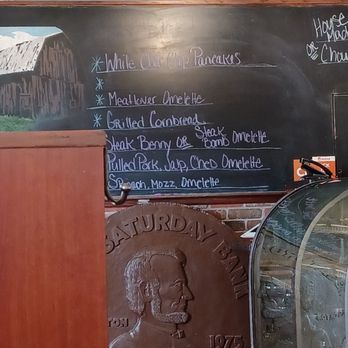 White Choc Chip Pancakes
House
Made
or
Chow
Meatlover Omelette
Grilled Cornbread
Steak Benny or Steak Bomb Omelette
Pulled Pork, Jalp, Ched Omelette
Spinach, Mozz Omelette
SATURDAY BAN
TON
1975